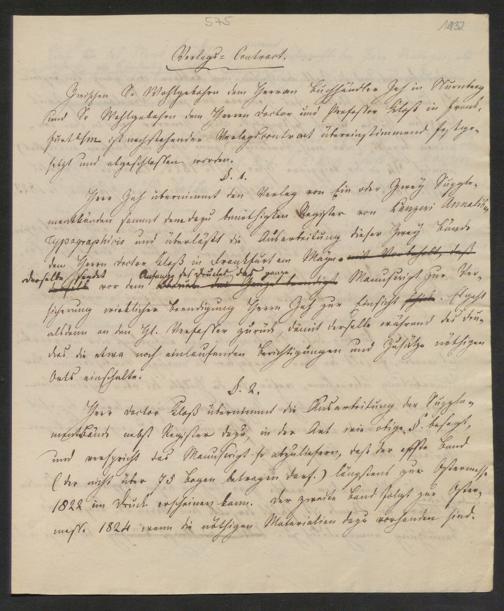 575
Verlags-Contract.
Zwischen Sr. Wohlgebohrn dem Herrn Buchhändler Zeh in Nürnberg
und Sr. Wohlgebohrn dem Herrn Doctor und Professor Kloß in Frank-
furt a/m ist nachstehender Verlagscontract übereinstimmend festge-
setzt und abgeschlossen worden.
§. 1.
Herr Zeh übernimmt den Verlag von Ein oder Zwey Supple-
mentbänden sammt dem dazu benöthigten Register von Panzers Annalibus
Typographicis und überläßt die Ausarbeitung dieser Zwey Bände
dem Herrn Doctor Kloß in Frankfurt am Mayn mit Vorbehalt, daß
derselbe sendet Anfang des Drucks das ganze
vor dem Manuscript zur Ver-
sicherung wirklicher Beendigung Herrn Zeh zur Einsicht. Es geht
alsdann an den H. Verfasser zurück, damit derselbe während des Dru-
ckes die etwa noch einlaufenden Berichtigungen und Zusätze nöthigen
Orts einschalte.
§. 2.
Herr Doctor Kloß übernimmt die Ausarbeitung der Supple-
mentbände nebst Register dazu, in der Art wie obige §. besagt,
und verspricht das Manuscript so abzuliefern, daß der erste Band
(der nicht über 75 Bogen betragen darf) längstens zur Ostermesse
1822 im Druck erscheinen kann. Der zweite Band folgt zur Oster-
messe 1824 wenn die nöthigen Materialien dazu vorhanden sind.